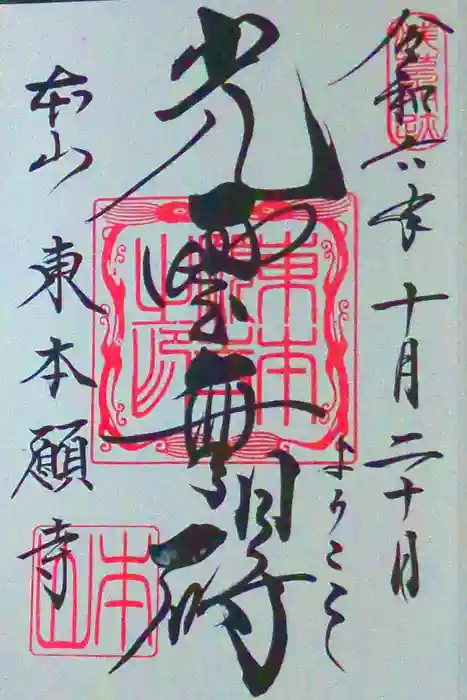 令和六年十月二十日
ようこそ
光雲無碍
本山 東本願寺
東本
願寺
之印
本山